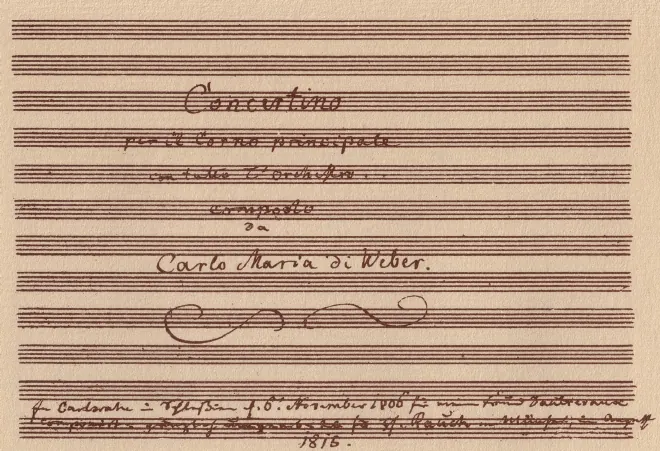 Concertino
per il Corno principale
con tutta l'orchestra . .
composto
da
Carlo Maria di Weber.
In Carlsruhe in Schlesien d. 6t. November 1806 für Dautrevaux
componirt für H. Rauch in München, im August
1815.